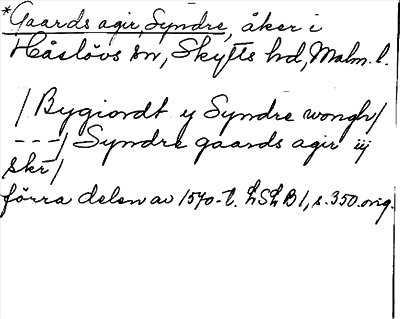 *Gaards agir, Syndre, åker i
Håslövs sn, Skytts hd, Malm. l.
/Bygiordt y Syndre wongh/
---/Syndre gaards agir iij
skr/
förra delen av 1570-t. LSLB 1, s. 350. orig.